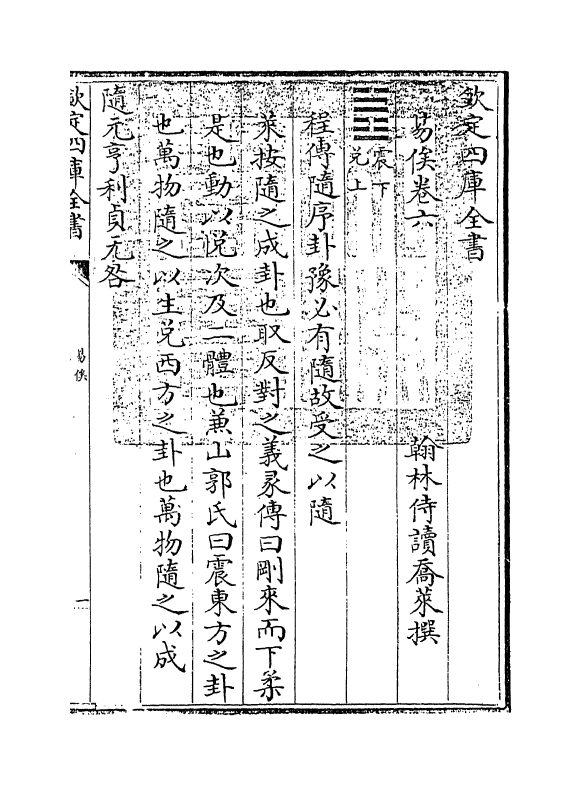 欽定四庫全書
易俟卷六
翰林侍讀喬萊撰
震下
兌上
程傳隨序卦豫必有隨故受之以隨
萊按隨之成卦也取反對之義彖傳曰剛來而下柔
是也動以悅次及二體也蒹山郭氏曰震東方之卦
也萬物隨之以生兌西方之卦也萬物隨之以成
隨元亨利貞无咎
欽定四庫全書
易俟
一